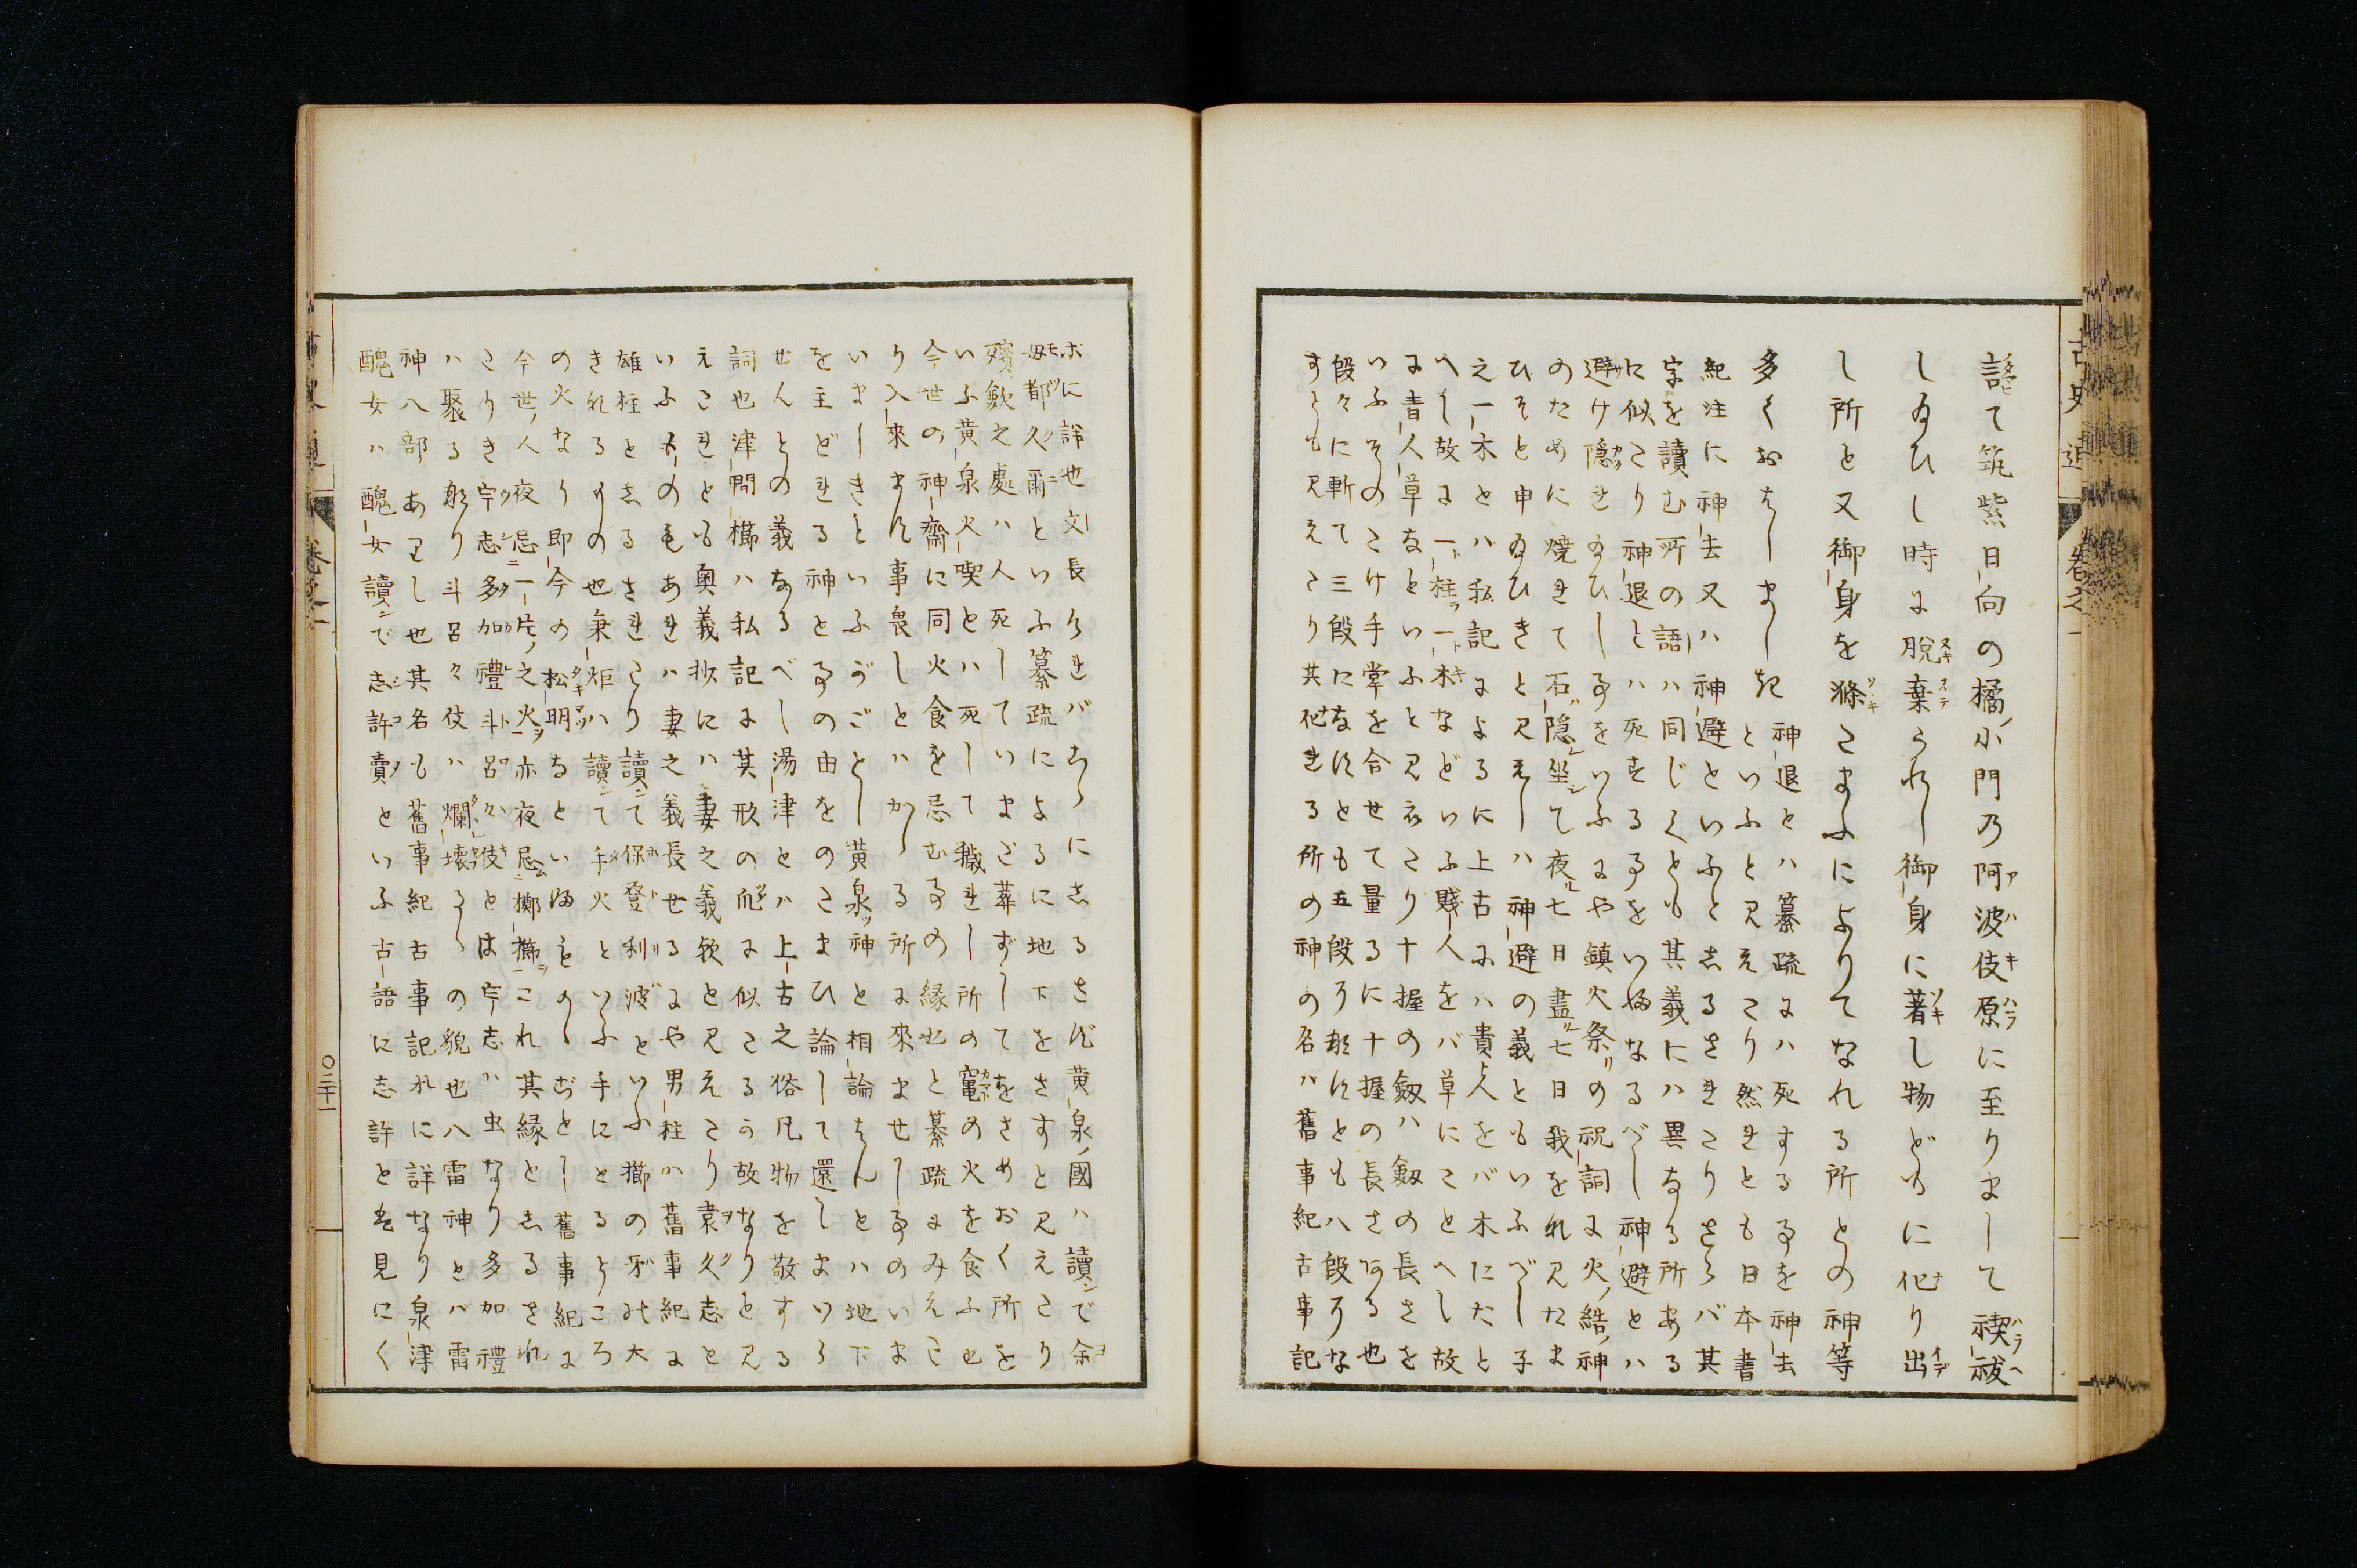 古史通 卷之一
謐て筑紫日向の橘ノ小門乃阿波伎原に至りまして禊祓
し給ひし時に脱棄られし御身に著し物どもに化り出
し所と又御身を滌たまふによりてなれる所との神等
多くおはしましき
神退とハ纂疏にハ死する事を神去
といふと見えたり然れとも日本書
紀注に神去又ハ神避といふとしるされたりさらバ其
字を讀む所の語ハ同じくとも其義にハ異なる所ある
に似たり神退とハ死する事をいふなるべし神避とハ
避け隠れ給ひし事をいふにや鎮火祭の祝詞に火ノ結ノ神
のために焼れて石隠坐て夜七日晝七日我をな見たま
ひそと申給ひきと見えしハ神避の義ともいふべし子
之一木とハ私記によるに上古にハ貴人をバ木にたと
へし故に一柱ヲ一木などいふ賤人をバ草にたとへし故
に青人草なといふと見えたり十握の劔ハ劔の長さを
いふそのたけ手掌を合せて量るに十握の長さある也
段々に斬て三段になすとも五段に斬すとも八段にな
すとも見えたり其化れる所の神の名ハ舊事紀古事記
ホに詳也文長けれバこゝにしるさず黄泉ノ國ハ讀で余
毋都久爾といふ纂疏によるに地下をさすと見えたり
殯斂之處ハ人死していまだ葬ずしてをさめおく所を
いふ黄泉火喫とハ死して穢れし所の竃の火を食ふ也
今世の神齋に同火食を忌む事の縁也と纂疏にみえた
り入來ます事畏しとハかゝる所に來ませし事のいま
いましきといふがごとし黄泉ツ神と相論はんとハ地下
を主どれる神と事の由をのたまひ論して還しまいら
せんとの義なるべし湯津とハ上古之俗凡物を敬する
詞也津間櫛ハ私記に其形の爪に似たるか故なりと見
えたれども奥義抄にハ妻之義歟と見えたり袁久志と
いふものもあれハ妻之義長せるにや男柱ハ舊事紀に
雄柱としるされたり讀て保登利波といふ櫛の牙の大
きれるものの也秉炬ハ讀て手火といふ手にとるところ
の火なり即今の松明なといふものゝごとし舊事紀に
今世ノ人夜忌一片之火ヲ亦夜忌擲櫛ヲこれ其縁としるされ
たりき宇志多加禮斗呂々伎とは宇志ハ虫なり多加禮
ハ聚る劣り斗呂々伎ハ爛壊るゝの貌也八雷神とハ雷
神八部ありし也其名も舊事紀古事記に詳なり泉津
醜女ハ醜女讀で志許賣といふ古語に志許と云見にく
〇二十一